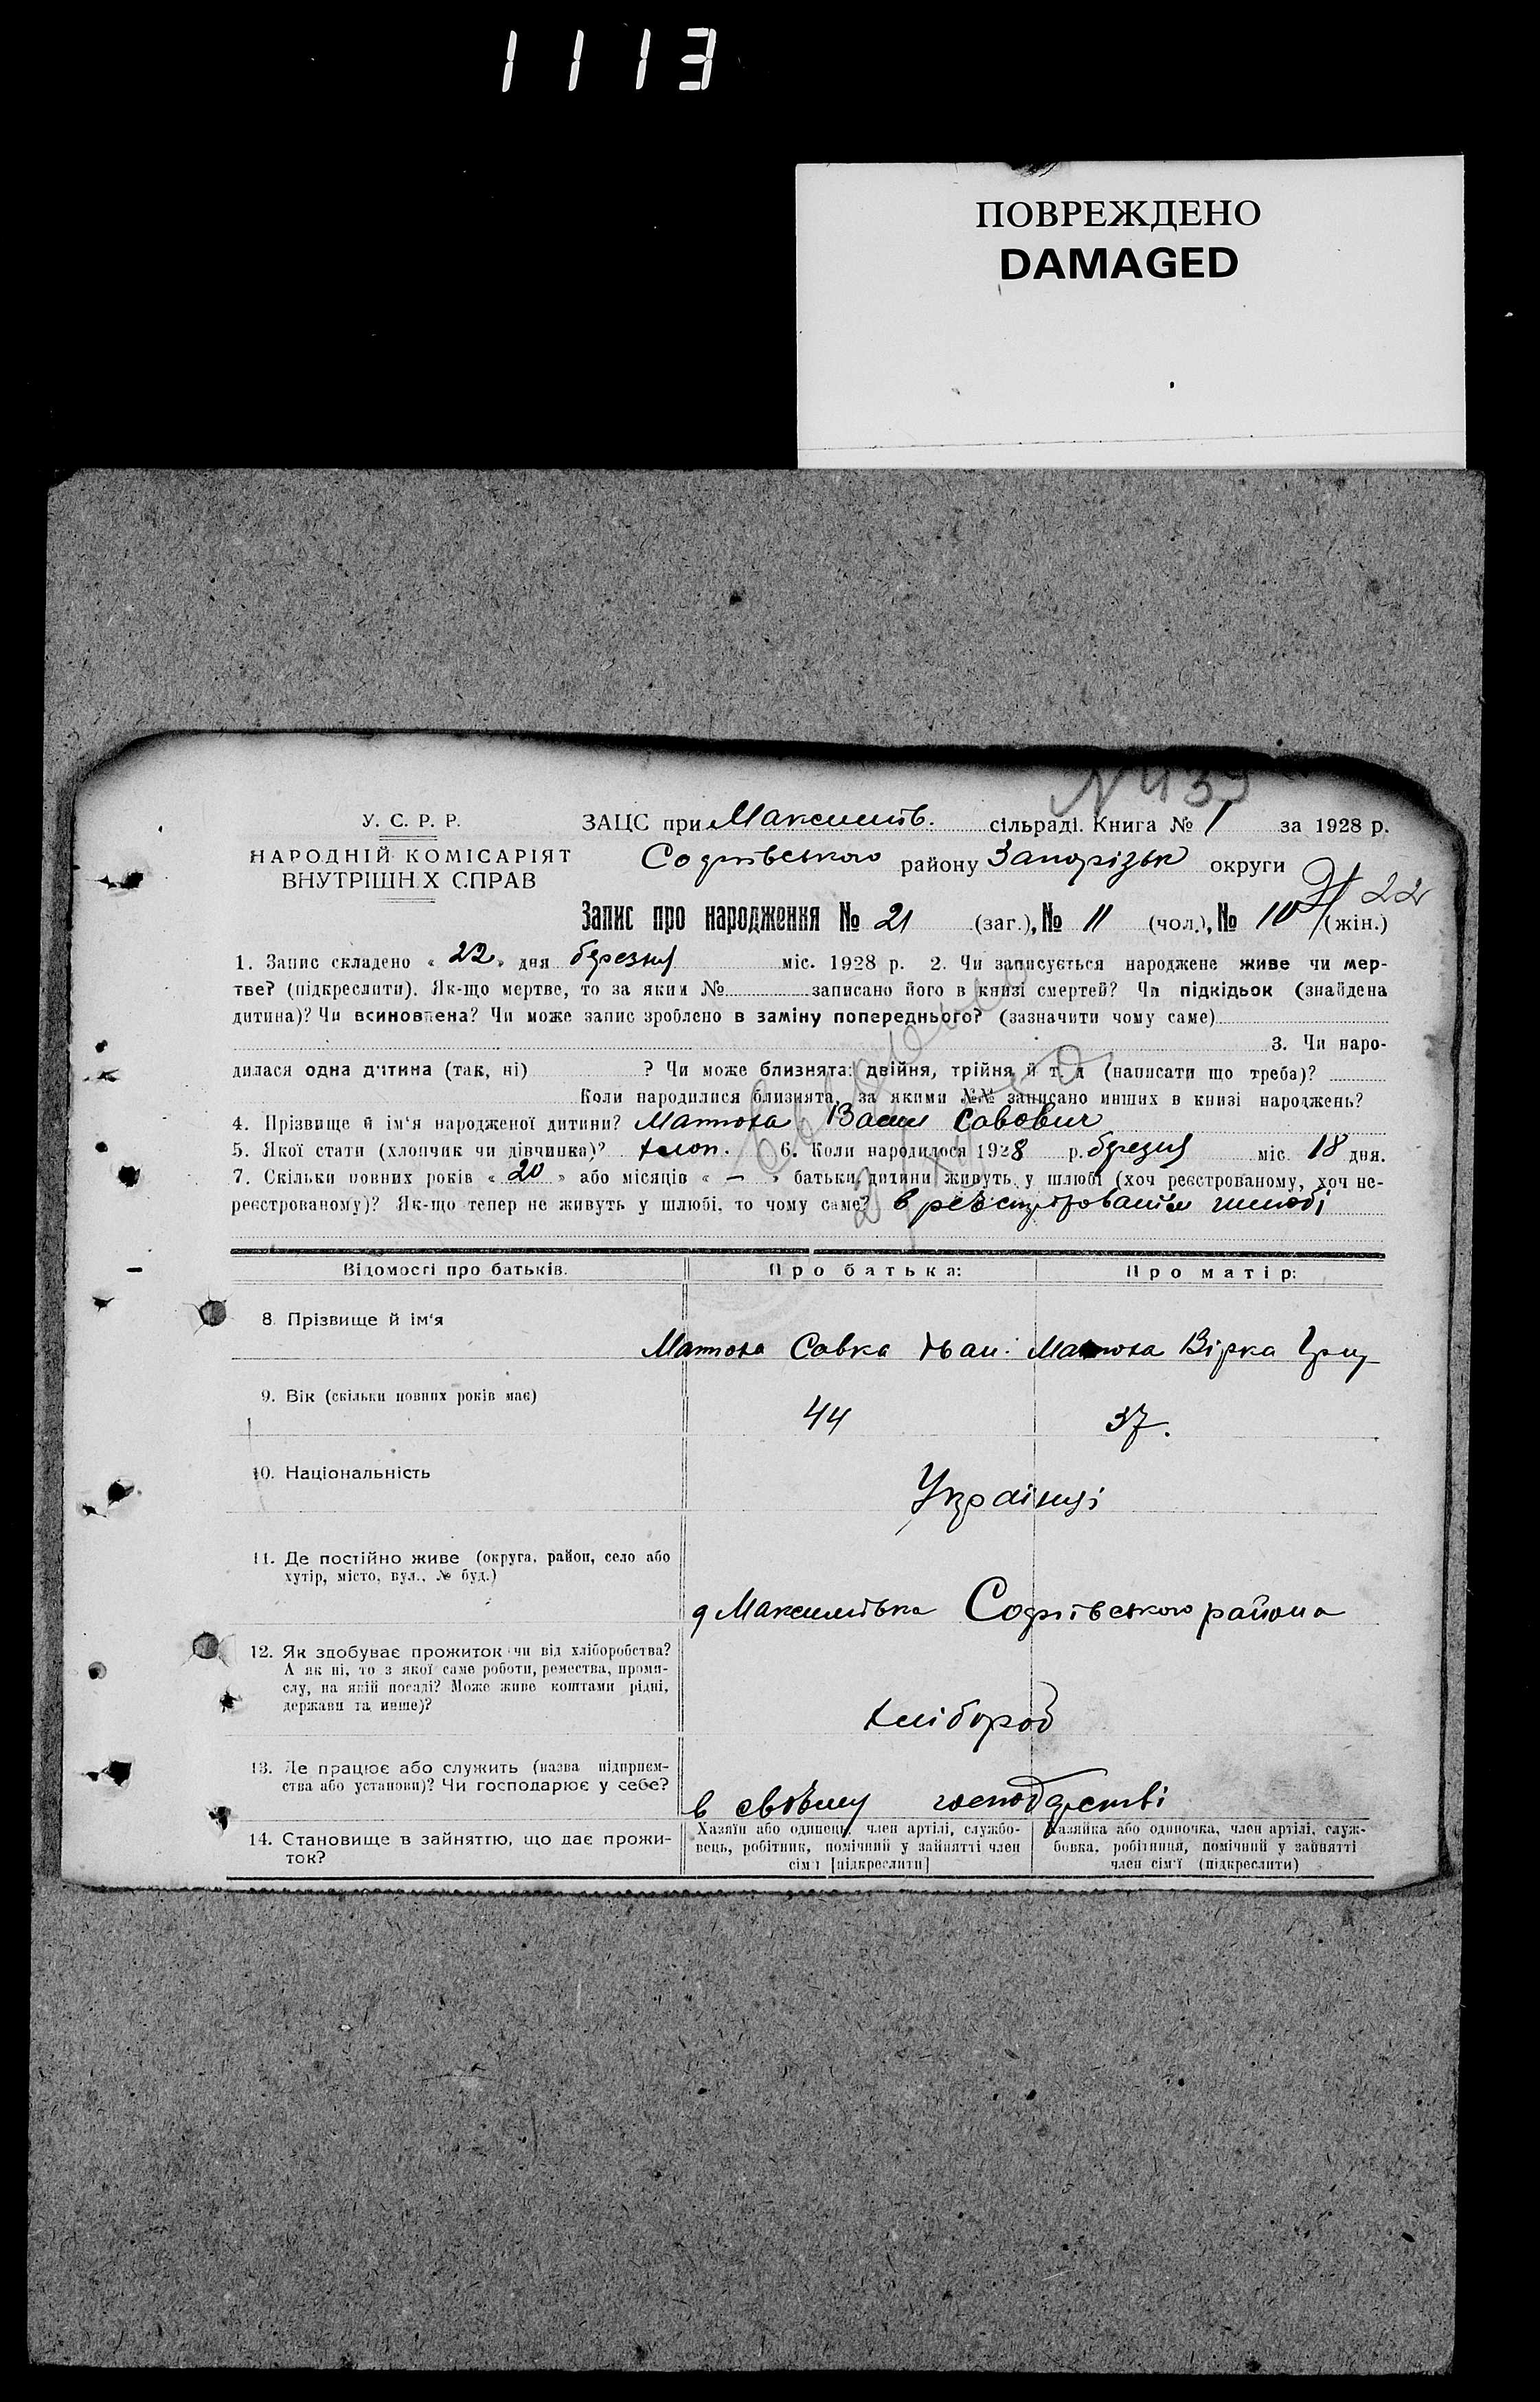 1113
ПОВРЕЖДЕНО
DAMAGED
N 433
У. С. Р. Р.
НАРОДНІЙ КОМІСАРІЯТ
ВНУТРІШН Х СПРАВ
ЗАЦС при Максимів. сільраді. Книга № 1 за 1928 р.
Софиівського району Запорізьк округи
22
Запис про народження № 21 (заг.), № 11 (чол.), № 10 (жін.)
1. Запис складено « 22 » дня березня міс. 1928 р. 2. Чи записується народжене живе чи мер-
тве? (підкреслити). Як-що мертве, то за яким № записано його в книзі смертей? Чи підкідьок (знайдена
дитина)? Чи всиновлена? Чи може запис зроблено в заміну попереднього? (зазначити чому саме)
3. Чи наро-
дилася одна дитина (так, ні) ? Чи може близнята: двійня, трійня й т. д (написати що треба)?
Коли народилися близнята, за якими №№ записано инших в книзі народжень?
4. Прізвище й ім'я народженої дитини? Матюха Васил Савович
5. Якої стати (хлопчик чи дівчинка)? хлоп. 6. Коли народилося 1928 р. березня міс. 18 дня.
7. Скільки повних років « 20 » або місяців « — » батьки дитини живуть у шлюбі (хоч реєстрованому, хоч не-
реєстрованому)? Як-що тепер не живуть у шлюбі, то чому саме? в шлюбі
Відомості про батьків.
Про батька:
Про матір:
8. Прізвище й ім'я
Матюха Савка Іван. Матюха Вірка Гриц
9. Вік (скільки повних років має)
44 37.
10. Національність
Українці
11. Де постійно живе (округа, район, село або
хутір, місто, вул., № буд.)
Максимівка Софиівського района
12. Як здобуває прожиток чи від хліборобства?
А як ні, то з якої саме роботи, ремества, проми-
слу, на якій посаді? Може живе коштами рідні,
держави та инше)?
хлібороб
13. Де працює або служить (назва підприєм-
ства або установи)? Чи господарює у себе?
в своєму господарстві
14. Становище в зайняттю, що дає прожи-
ток?
Хазяїн або одинець, член артілі, службо-
вець, робітник, помічний у зайнятті член
сім'ї [підкреслити]
Хазяйка або одиночка, член артілі, служ-
бовка, робітниця, помічний у зайнятті
член сім'ї (підкреслити)